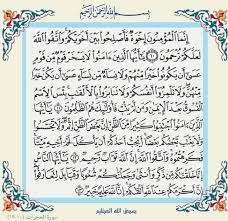 بِسْمِ اللَّهِ الرَّحْمَٰنِ الرَّحِيمِ
إِنَّمَا الْمُؤْمِنُونَ إِخْوَةٌ فَأَصْلِحُوا بَيْنَ أَخَوَيْكُمْ وَاتَّقُوا اللَّهَ
لَعَلَّكُمْ تُرْحَمُونَ ۝١٠ يَٰأَيُّهَا الَّذِينَ ءَامَنُوا لَا يَسْخَرْ قَوْمٌ مِّن قَوْمٍ
عَسَىٰ أَن يَكُونُوا خَيْرًا مِّنْهُمْ وَلَا نِسَاءٌ مِّن نِّسَاءٍ عَسَىٰ أَن يَكُنَّ خَيْرًا
مِّنْهُنَّ وَلَا تَلْمِزُوا أَنفُسَكُمْ وَلَا تَنَابَزُوا بِالْأَلْقَٰبِ بِئْسَ الِاسْمُ
الْفُسُوقُ بَعْدَ الْإِيمَٰنِ وَمَن لَّمْ يَتُبْ فَأُولَٰئِكَ هُمُ الظَّٰلِمُونَ ۝١١
يَٰأَيُّهَا الَّذِينَ ءَامَنُوا اجْتَنِبُوا كَثِيرًا مِّنَ الظَّنِّ إِنَّ بَعْضَ الظَّنِّ إِثْمٌ وَلَا تَجَسَّسُوا
وَلَا يَغْتَب بَّعْضُكُم بَعْضًا أَيُحِبُّ أَحَدُكُمْ أَن يَأْكُلَ لَحْمَ أَخِيهِ مَيْتًا
فَكَرِهْتُمُوهُ وَاتَّقُوا اللَّهَ إِنَّ اللَّهَ تَوَّابٌ رَّحِيمٌ ۝١٢ يَٰأَيُّهَا النَّاسُ
إِنَّا خَلَقْنَٰكُم مِّن ذَكَرٍ وَأُنثَىٰ وَجَعَلْنَٰكُمْ شُعُوبًا وَقَبَائِلَ لِتَعَارَفُوا
إِنَّ أَكْرَمَكُمْ عِندَ اللَّهِ أَتْقَىٰكُمْ إِنَّ اللَّهَ عَلِيمٌ خَبِيرٌ ۝١٣
صدق الله العظيم
سورة الحجرات (١٠-١٣)